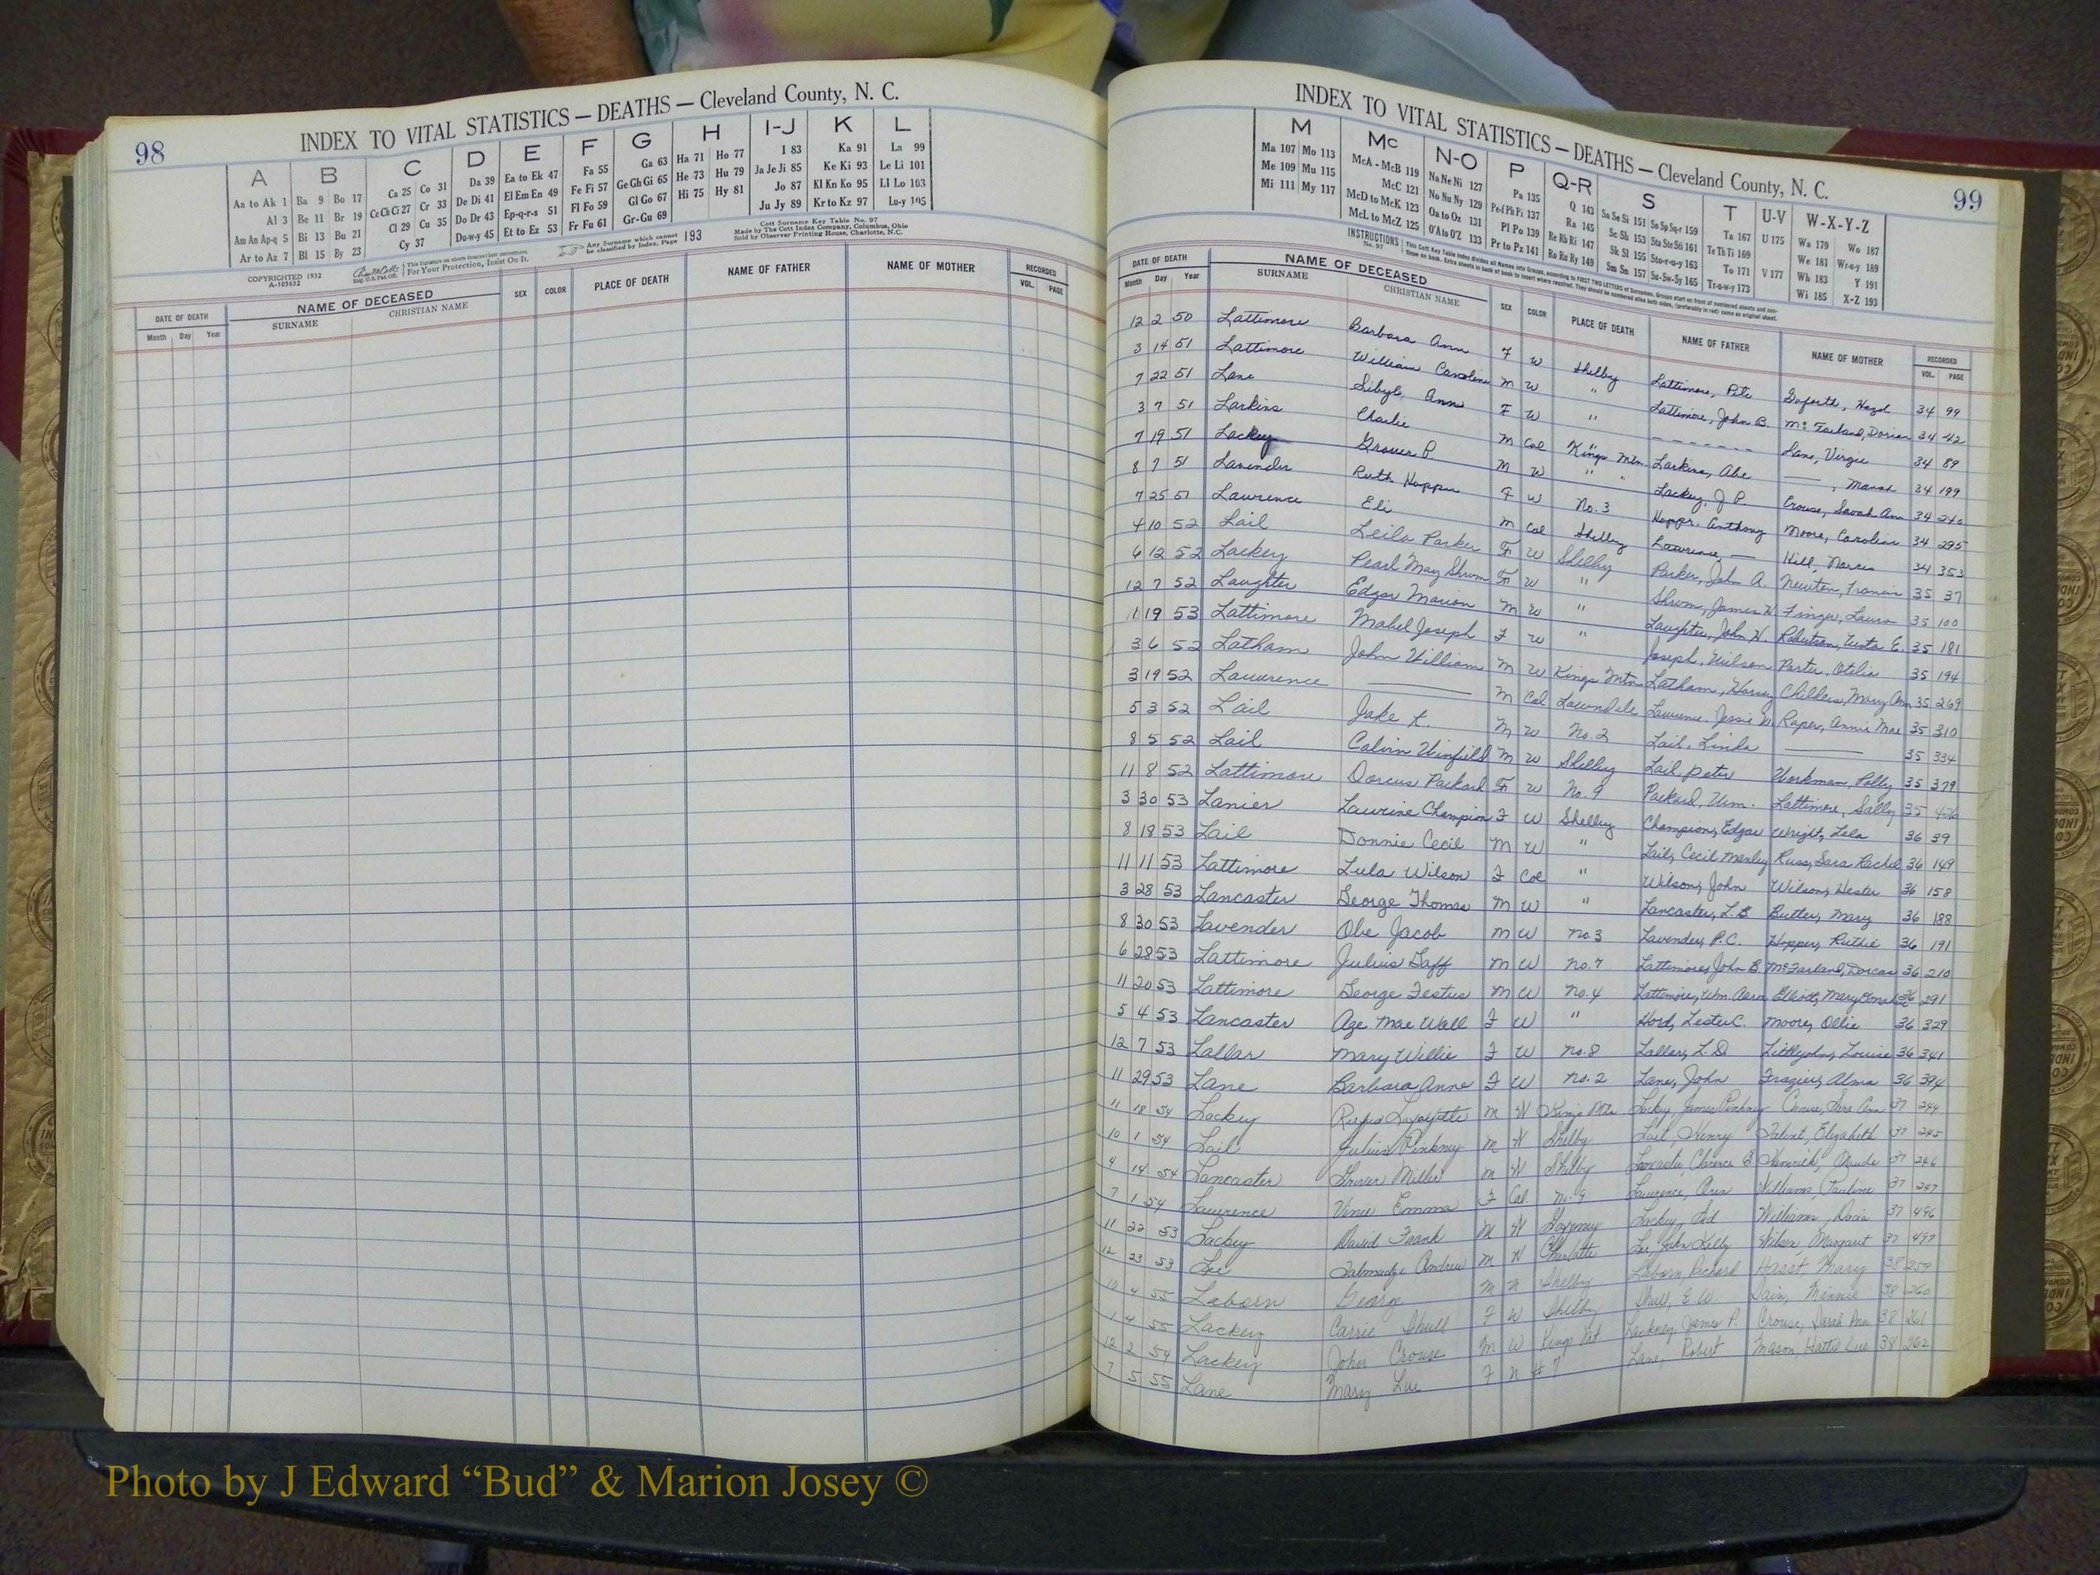 98
INDEX TO VITAL STATISTICS — DEATHS — Cleveland County, N. C.
A B C D E F G H I-J K L
Aa to Ak 1 Ba 9 Bo 17 Ca 25 Co 31 Da 39 Ea to Ek 47 Fa 55 Ga 63 Ha 71 Ho 77 I 83 Ka 91 La 99
Al 3 Be 11 Br 19 Ce Ch Ci 27 Cr 33 De Di 41 El Em En 49 Fe Fi 57 Ge Gh Gi 65 He 73 Hu 79 Ja Je Ji 85 Ke Ki 93 Le Li 101
Am An Ap-q 5 Bi 13 Bu 21 Cl 29 Cu 35 Do Dr 43 Ep-q-r-s 51 Fl Fo 59 Gl Go 67 Hi 75 Hy 81 Jo 87 Kl Kn Ko 95 Ll Lo 103
Ar to Az 7 Bl 15 By 23 Cy 37 Du-w-y 45 Et to Ez 53 Fr Fu 61 Gr-Gu 69 Ju Jy 89 Kr to Kz 97 Lu-y 105
COPYRIGHTED 1932
A-103632
For Your Protection, Insist On It.
Any Surname which cannot be classified by Index, Page 193
Cott Surname Key Table No. 97
Made by The Cott Index Company, Columbus, Ohio
Sold by Observer Printing House, Charlotte, N.C.
DATE OF DEATH NAME OF DECEASED SEX COLOR PLACE OF DEATH NAME OF FATHER NAME OF MOTHER RECORDED
Month Day Year SURNAME CHRISTIAN NAME VOL. PAGE
INDEX TO VITAL STATISTICS — DEATHS — Cleveland County, N. C.
99
M Mc N-O P Q-R S T U-V W-X-Y-Z
Ma 107 Mo 113 McA - McB 119 Na Ne Ni 127 Pa 135 Q 143 Sa Se Si 151 So Sp Sq-r 159 Ta 167 U 175 Wa 179 Wo 187
Me 109 Mu 115 McC 121 No Nu Ny 129 Pe-f Ph Pi 137 Ra 145 Sc Sh 153 Sta Ste Sti 161 Te Th Ti 169 We 181 Wr-u-y 189
Mi 111 My 117 McD to McK 123 Oa to Oz 131 Pl Po 139 Re Rh Ri 147 Sk Sl 155 Sto-r-u-y 163 To 171 V 177 Wh 183 Y 191
McL to McZ 125 O'A to O'Z 133 Pr to Pz 141 Ro Ru Ry 149 Sm Sn 157 Su-Sw-Sy 165 Tr-u-w-y 173 Wi 185 X-Z 193
INSTRUCTIONS No. 97
DATE OF DEATH NAME OF DECEASED SEX COLOR PLACE OF DEATH NAME OF FATHER NAME OF MOTHER RECORDED
Month Day Year SURNAME CHRISTIAN NAME VOL. PAGE
12 2 50 Lattimore Barbara Ann F W Shelby Lattimore, Pete Goforth, Hazel 34 99
3 14 51 Lattimore William Caroline M W " Lattimore, John B. McFarland, Dorian 34 42
7 22 51 Lane Sibyl Ann F W " - - - - - Lane, Virgie 34 89
3 7 51 Larkins Charlie M Col Kings Mtn. Larkins, Abe —, Mariah 34 199
7 19 51 Lackey Grover P. M W " " Lackey, J. P. Crouse, Sarah Ann 34 240
8 7 51 Lavender Ruth Hopper F W No. 3 Hopper, Anthony Moore, Caroline 34 295
7 25 51 Lawrence Eli M Col Shelby Lawrence, — Hill, 34 353
4 10 52 Lail Leila Parker F W Shelby Parker, John A. Newton, Francis 35 37
6 12 52 Lackey Pearl May Shrum F W " Shrum, James W. Finger, Laura 35 100
12 7 52 Laughter Edgar Marion M W " Laughter, John H. Robertson, E. 35 181
1 19 53 Lattimore Mabel Joseph F W " Joseph, Wilson Porter, Otelia 35 194
3 6 52 Latham John William M W Kings Mtn Latham, Harvey Childers, Mary Ann 35 269
3 19 52 Lawrence — M Col Lawndale Lawrence, Jessie W. Raper, Annie Mae 35 310
5 3 52 Lail Jake M W No. 2 Lail, Linda — 35 334
8 5 52 Lail Calvin Winfield M W Shelby Lail, Peter Workman, Polly 35 379
11 8 52 Lattimore Dorcus Packard F W No. 9 Packard, Wm. Lattimore, Sally 35
3 30 53 Lanier Laurine Champion F W Shelby Champion, Edgar Wright, Lela 36 39
8 18 53 Lail Donnie Cecil M W " Lail, Cecil Manley Russ, Sara Rachel 36 149
11 11 53 Lattimore Lula Wilson F Col " Wilson, John Wilson, Hester 36 158
3 28 53 Lancaster George Thomas M W " Lancaster, L. B. Butler, Mary 36 188
8 30 53 Lavender Obe Jacob M W No. 3 Lavender, P.C. Hopper, Ruthie 36 191
6 28 53 Lattimore Julius Daff M W No. 7 Lattimore, John B. McFarland, Dorcas 36 210
11 20 53 Lattimore George Festus M W No. 4 Lattimore, Wm. Aaron Elliott, Mary 36 291
5 4 53 Lancaster Aze Mae Wall F W " Hord, Lester C. Moore, Ollie 36 329
12 7 53 Lallar Mary Willie F W No. 8 Lallar, L. D Littlejohn, Louise 36 341
11 29 53 Lane Barbara Anne F W No. 2 Lane, John Frazier, Alma 36 394
11 18 54 Lackey Rufus Lafayette M W Kings Mtn Lackey, James Pinkney Crouse, Sara Ann 37 244
10 1 54 Lail Julius Pinkney M W Shelby Lail, Henry Talent, Elizabeth 37 245
4 14 54 Lancaster Grover Miller M W Shelby Lancaster, Clarence B Hamrick, Maude 37 246
7 1 54 Lawrence Vinie Emma F Col No. 9 Lawrence, Williams, Pauline 37 247
11 22 53 Lackey David Frank M W Gaffney Lackey, Williams, 37 496
12 23 53 Lee Talmadge Andrew M W Charlotte Lee, John Kelly Wilson, Margaret 37 497
10 4 55 Laborn George M N Shelby Laborn, Richard Mary 38 259
1 4 55 Lackey Carrie Shull F W Shelby Shull, E W Sain, Minnie 38 260
12 2 54 Lackey John Crouse M W Kings Mt Lackney, James P. Crouse, Sarah Ann 38 261
7 5 55 Lane Mary Lue F N # 7 Lane, Robert Mason, Hattie Lee 38 262
Photo by J Edward “Bud” & Marion Josey ©